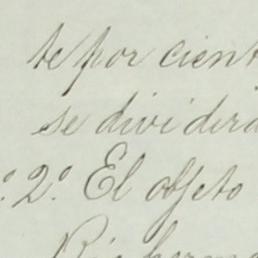 te por cient
se dividirá
º 2º El objeto